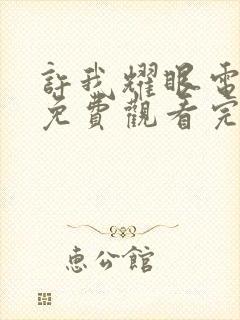 許我耀眼電
免費觀看完
惠公館